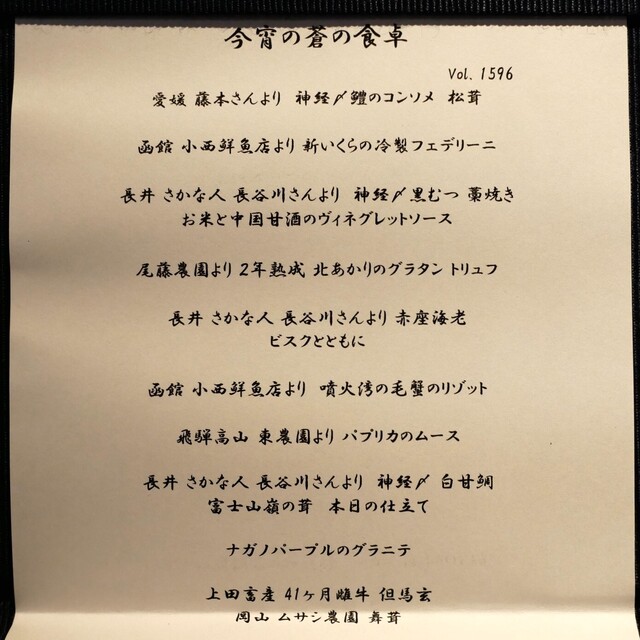 今宵の蒼の食卓
Vol. 1596
愛媛 藤本さんより 神経〆鱧のコンソメ 松茸
函館 小西鮮魚店より 新いくらの冷製フェデリーニ
長井 さかな人 長谷川さんより 神経〆黒むつ 藁焼き
お米と中国甘酒のヴィネグレットソース
尾藤農園より 2年熟成 北あかりのグラタン トリュフ
長井 さかな人 長谷川さんより 赤座海老
ビスクとともに
函館 小西鮮魚店より 噴火湾の毛蟹のリゾット
飛騨高山 東農園より パプリカのムース
長井 さかな人 長谷川さんより 神経〆 白甘鯛
富士山嶺の茸 本日の仕立て
ナガノパープルのグラニテ
上田畜産 41ヶ月雌牛 但馬玄
岡山 ムサシ農園 舞茸